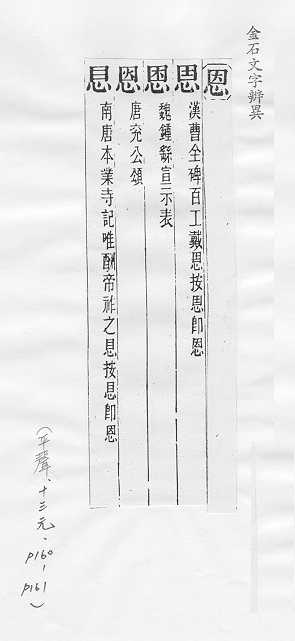 金石文字辨異
恩
恩 漢曹全碑百工戴恩按恩卽恩
恩 魏鍾繇宣示表
恩 唐兖公頌
息 南唐本業寺記唯酬帝祚之息按息卽恩
(平聲、十三元、P160-P161)